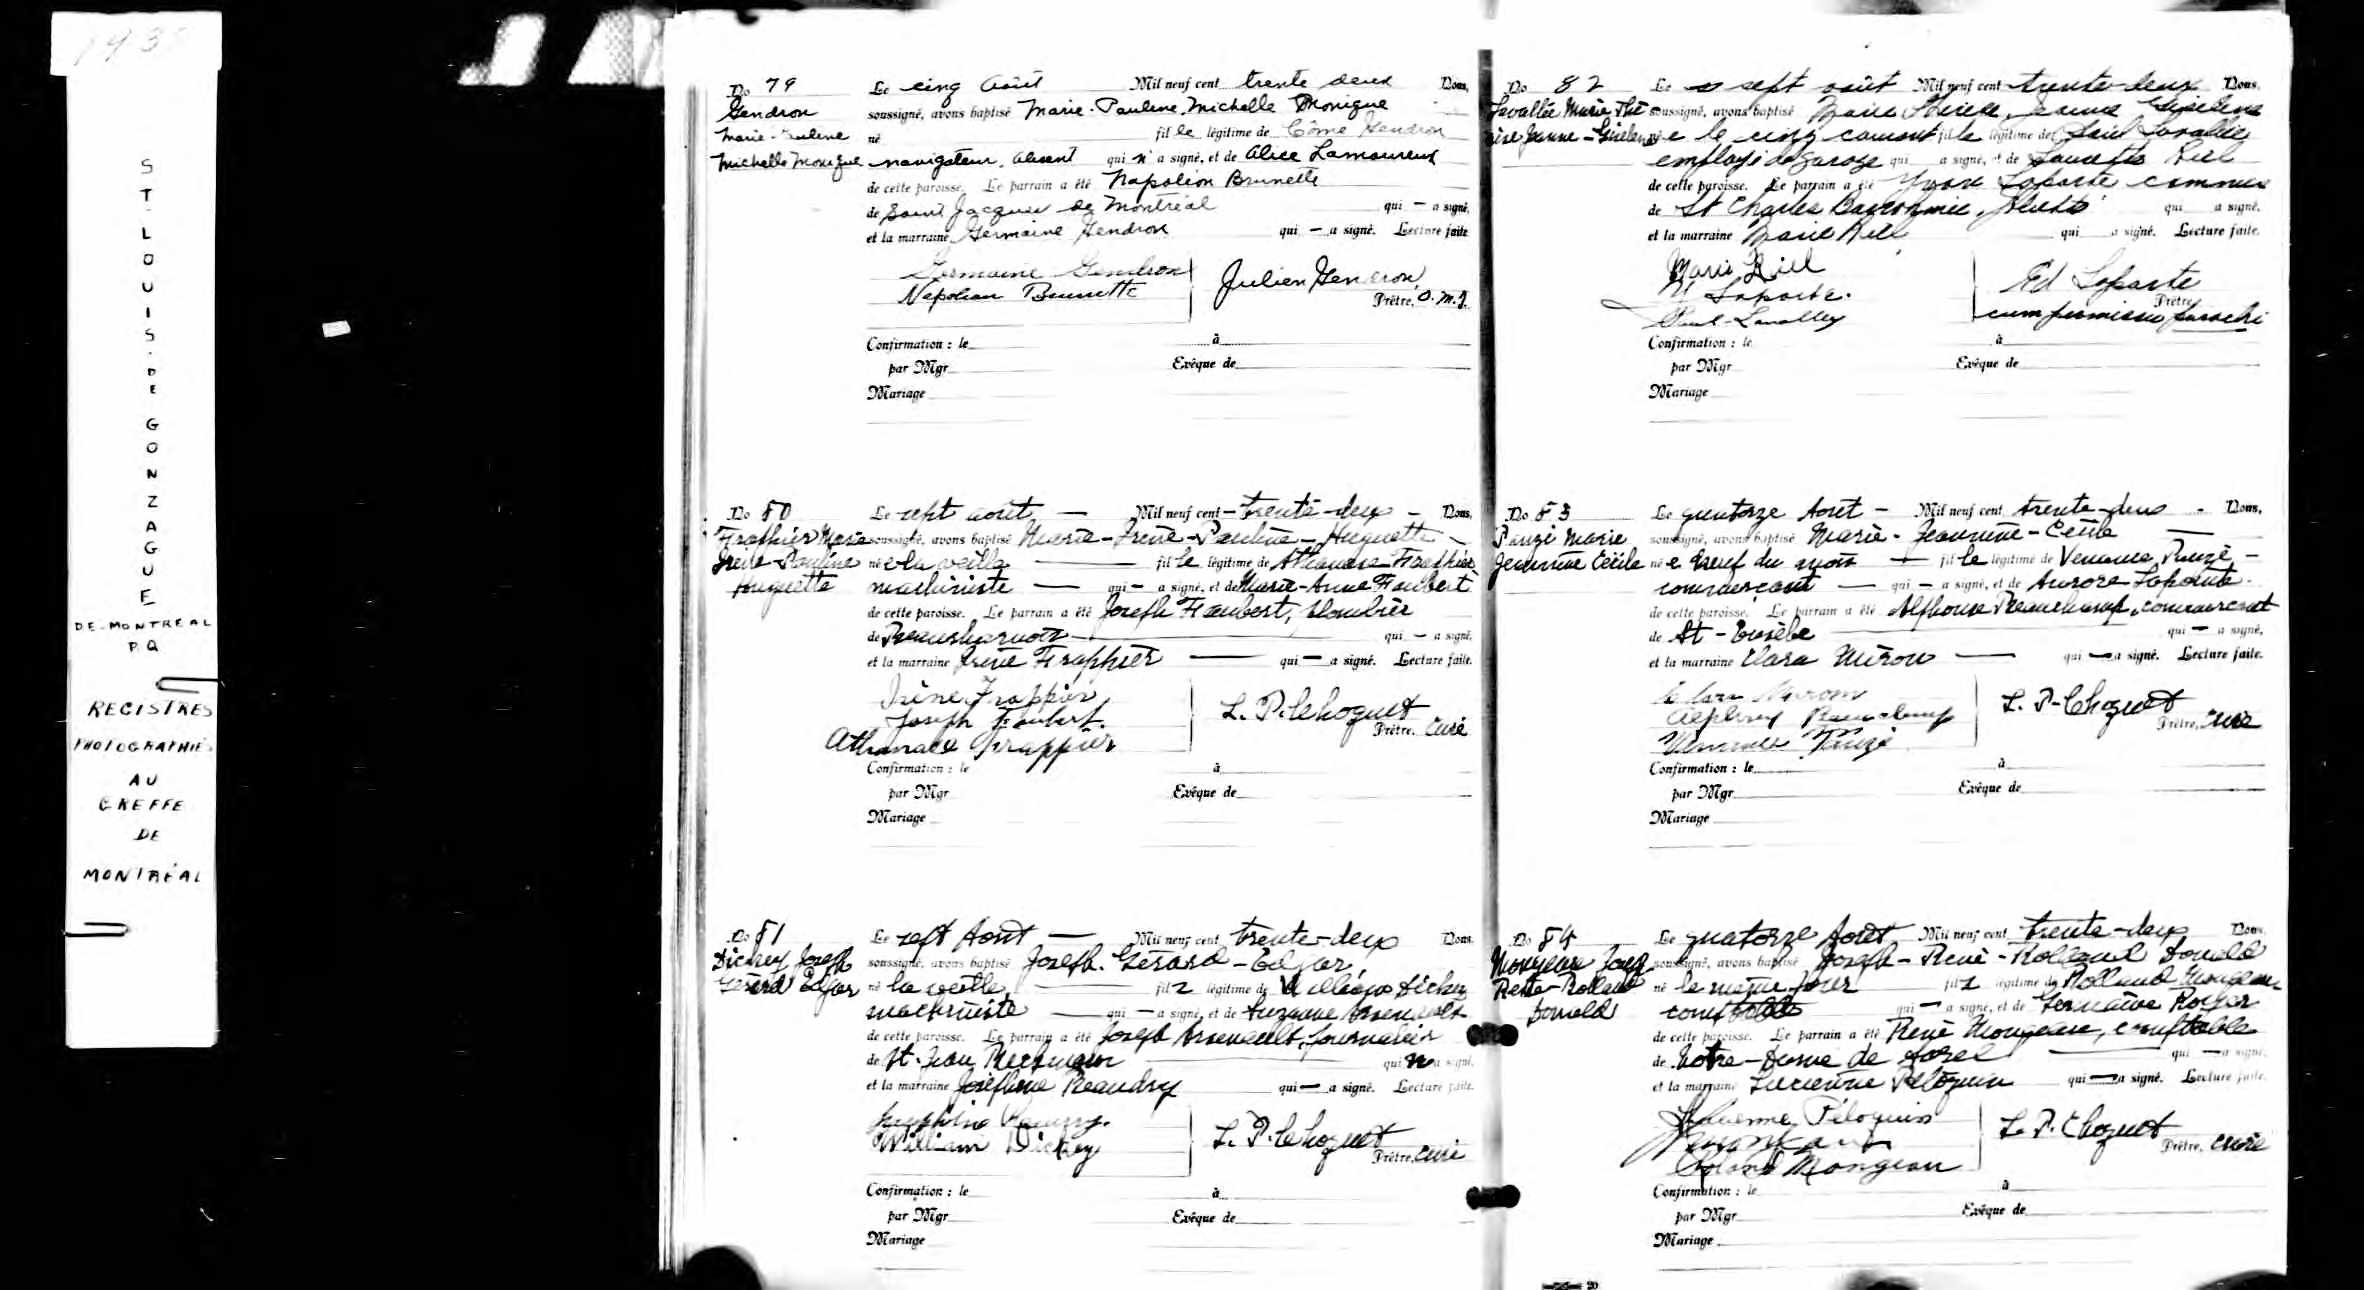 1932
ST-LOUIS-DE GONZAGUE
DE-MONTREAL
P.Q
REGISTRES
PHOTOGRAPHIÉS
AU
GREFFE
DE
MONTRÉAL
No 79
Gendron
Marie-Pauline
Michelle Monique
Le cinq août Mil neuf cent trente deux Nous,
soussigné, avons baptisé Marie-Pauline Michelle Monique
né fille légitime de Côme Gendron
navigateur, absent qui n'a signé, et de Alice Lamoureux
de cette paroisse. Le parrain a été Napoléon Brunette
de Saint Jacques de Montréal qui — a signé,
et la marraine Germaine Gendron qui — a signé. Lecture faite.
Germaine Gendron
Napoléon Brunette
Julien Gendron,
Prêtre, O.M.I.
Confirmation : le à
par Mgr Evêque de
Mariage
No 80
Frappier Marie
Irène-Pauline
Huguette
Le sept août — Mil neuf cent — trente-deux — Nous,
soussigné, avons baptisé Marie-Irène-Pauline-Huguette —
née la veille — fille légitime de Athanase Frappier
machiniste — qui — a signé, et de Marie-Anne Faubert
de cette paroisse. Le parrain a été Joseph Faubert, plombier
de Beauharnois — qui — a signé,
et la marraine Irène Frappier — qui — a signé. Lecture faite.
Irène Frappier
Joseph Faubert.
Athanase Frappier
L. P. Choquet
Prêtre, curé
Confirmation : le à
par Mgr Evêque de
Mariage
No 81
Dickey Joseph
Gérard Edgar
Le sept Août — Mil neuf cent trente-deux Nous,
soussigné, avons baptisé Joseph-Gérard-Edgar,
né la veille, — fils légitime de William Dickey
machiniste — qui — a signé, et de Suzanne Arsenault
de cette paroisse. Le parrain a été Joseph Arsenault, journalier
de St-Jean Berchmans qui n'a signé,
et la marraine Joséphine Beaudry qui — a signé. Lecture faite.
William Dickey
L. P. Choquet
Prêtre, curé
Confirmation : le à
par Mgr Evêque de
Mariage
No 82
Lavallée Marie Thé
rèse Jeanne-Gisèle
Le sept août Mil neuf cent trente-deux Nous,
soussigné, avons baptisé Marie Thérèse Jeanne
née le cinq courant fille légitime de Paul Lavallée
employé de garage qui a signé, et de Laurette Riel
de cette paroisse. Le parrain a été Yvon Laporte commis
de St Charles Borromée, Joliette qui a signé,
et la marraine Marie Riel qui a signé. Lecture faite.
Marie Riel
Y Laporte.
Paul Lavallée
Ed Laporte
Prêtre,
cum permissu parochi
Confirmation : le à
par Mgr Evêque de
Mariage
No 83
Pauzé Marie
Jeannine Cécile
Le quatorze Août — Mil neuf cent trente-deux - Nous,
soussigné, avons baptisé Marie-Jeannine-Cécile —
née neuf du mois — fille légitime de Venance Pauzé —
commerçant — qui — a signé, et de Aurore Lapointe
de cette paroisse. Le parrain a été Alphonse Beauchamp, commerçant
de St-Eusèbe — qui — a signé,
et la marraine Clara Miron — qui — a signé. Lecture faite.
Clara Miron
Beauchamp
Venance Pauzé
L. P. Choquet
Prêtre, curé
Confirmation : le à
par Mgr Evêque de
Mariage
No 84
Mongeau Joseph
René-Rolland
Donald
Le quatorze Août Mil neuf cent trente-deux Nous,
soussigné, avons baptisé Joseph-René-Rolland Donald
né le même jour fils légitime de Rolland Mongeau
comptable qui — a signé, et de Germaine Royer
de cette paroisse. Le parrain a été René Mongeau, comptable
de Notre-Dame de Sorel — qui — a signé,
et la marraine Lucienne Péloquin qui — a signé. Lecture faite.
Lucienne Péloquin
Roland Mongeau
L. P. Choquet
Prêtre, curé
Confirmation : le à
par Mgr Evêque de
Mariage
20